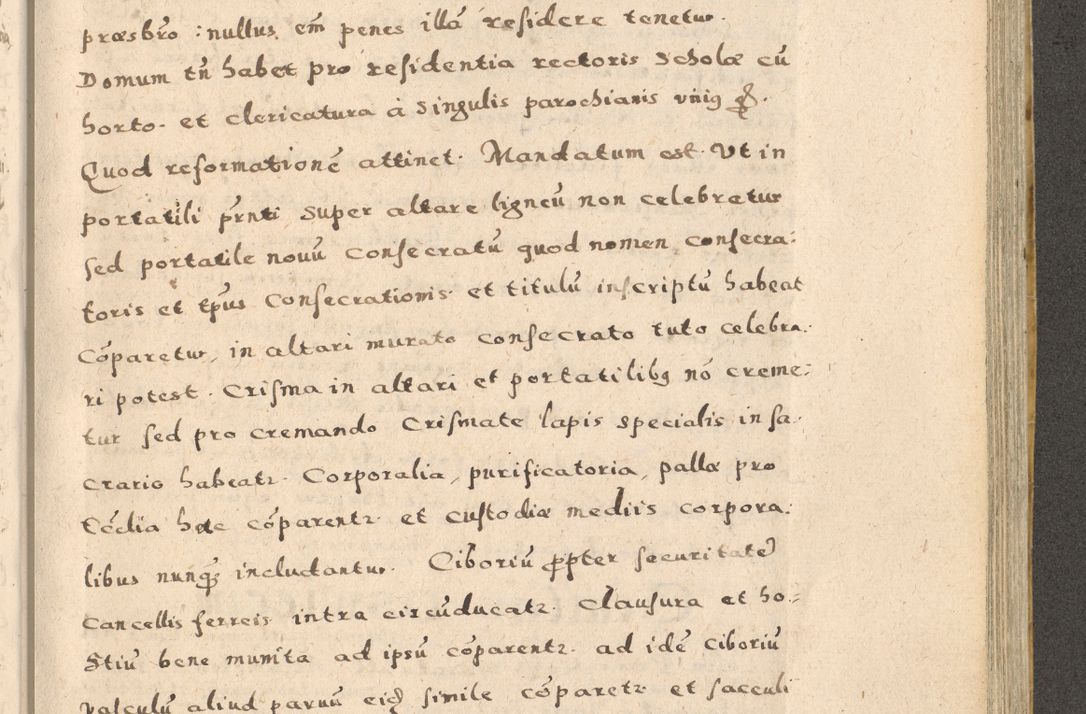 præsbrō : nullus em̄ penes illā residere tenetur.
Domum tn̄ habet pro residentia rectoris Scholæ cū
horto. et clericatura à singulis parochianis vniq
Quod reformationē attinet. Mandatum est. Vt in
portatili prn̄ti super altare ligneū non celebretur
sed portatile nouū consecratū quod nomen consecra:
toris et tp̄us Consecrationis et titulū inscriptū habeat
Cōparetur, in altari murato consecrato tuto celebra.
ri potest. Crisma in altari et portatilibq nō creme:
tur sed pro cremando Crismate lapis specialis in sa.
crario habeatr. Corporalia, purificatoria, pallæ pro
Eccl̄ia hac cōparentr. et custodiæ mediis corpora:
libus nunq3 includantur. Ciboriū ꝓpter securitatē
Cancellis ferreis intra circūducatr. Clausura et ho:
Stiū bene munita ad ipsū cōparentr. ad idē ciboriū
valculū aliud paruū eiq simile cōparetr et sacculi